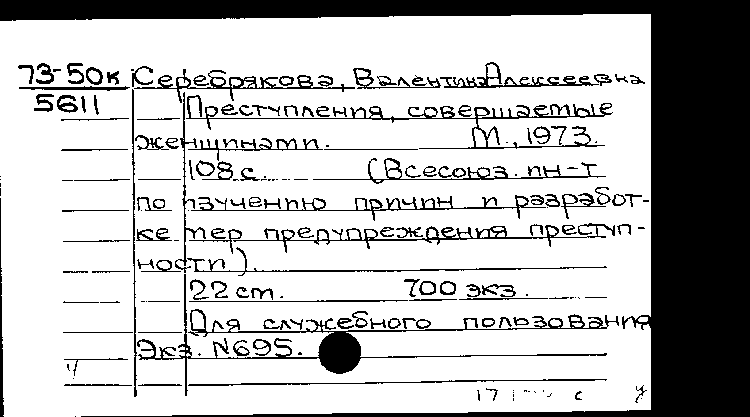 73-50к Серебрякова, Валентина Алексеевна
5611 Преступления, совершаемые
женщинами. М., 1973.
108 с. (Всесоюз. ин-т
по изучению причин и разработ-
ке мер предупреждения преступ-
ности).
22 см. 700 экз.
Для служебного пользования
Экз. N695.
ч
17 с у